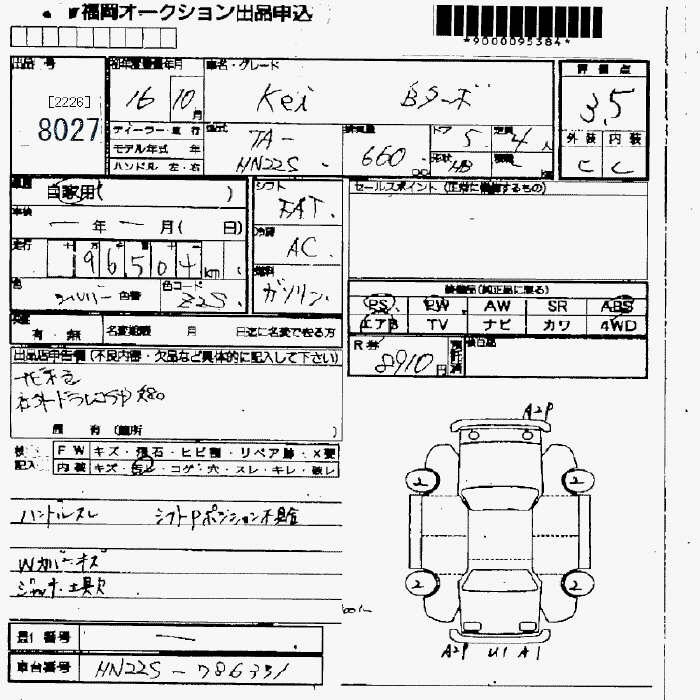 福岡オークション出品申込
*9000095384*
出品 号
[2226]
8027
車名・グレード
16 10月 Kei Bターボ
評価点
3.5
外装 内装
C C
ディーラー・並行
モデル年式 年
ハンドル 左・右
型式 TA-
HN22S
排気量 660 cc
ドア 5
定員 4人
形状 HB
自家用( )
車検 ー 年 ー 月( 日)
走行 96504 km
シルバー 色替
色コード Z2S
シフト FAT
冷房 AC
燃料 ガソリン
セールスポイント (正常に機能するもの)
装備品(純正品に限る)
PS PW AW SR ABS
エアB TV ナビ カワ 4WD
有・無 名変期限 月 日迄に名変できる方
R券 8910円 預託済
出品店申告欄(不良内容・欠品など具体的に記入して下さい)
有(箇所 )
FW キズ・飛石・ヒビ割・リペア跡・X要
記入 内装 キズ・コゲ・穴・スレ・キレ・破レ
ハンドルスレ シフトPポジション不具合
Wカバーキズ
ジャッキ・工具欠
A2P
2 2
2 2
A2P U1 A1
番号 ー
車台番号 HN22S-786351